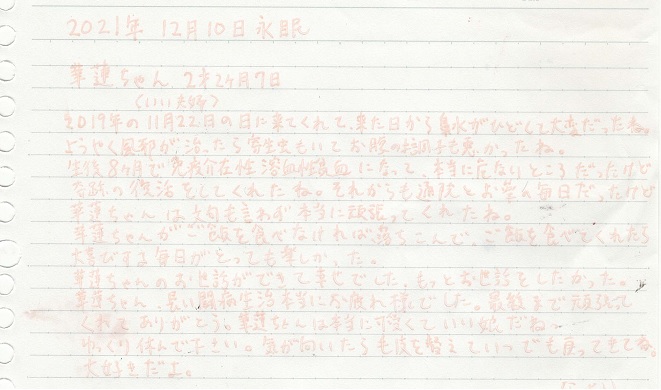 2021年 12月10日永眠
華蓮ちゃん 2才2ヶ月7日
(いい夫婦)
2019年の11月22日の日に来てくれて、来た日から鼻水がひどくて大変だったね。
ようやく風邪が治ったら寄生虫もいてお腹の調子も悪かったね。
生後8ヶ月で免疫介在性溶血性貧血になって、本当に危ないところだったけど
奇跡の復活をしてくれたね。それからも通院とお薬の毎日だったけど
華蓮ちゃんは文句も言わず本当に頑張ってくれたね。
華蓮ちゃんがご飯を食べなければ落ちこんで、ご飯を食べてくれたら
大喜びする毎日がとっても楽しかった。
華蓮ちゃんのお世話ができて幸せでした。もっとお世話をしたかった。
華蓮ちゃん、長い闘病生活本当にお疲れ様でした。最後まで頑張って
くれてありがとう。華蓮ちゃんは本当に可愛くていい娘だね
ゆっくり休んで下さい。気が向いたら毛皮を替えていつでも戻ってきてね。
大好きだよ。